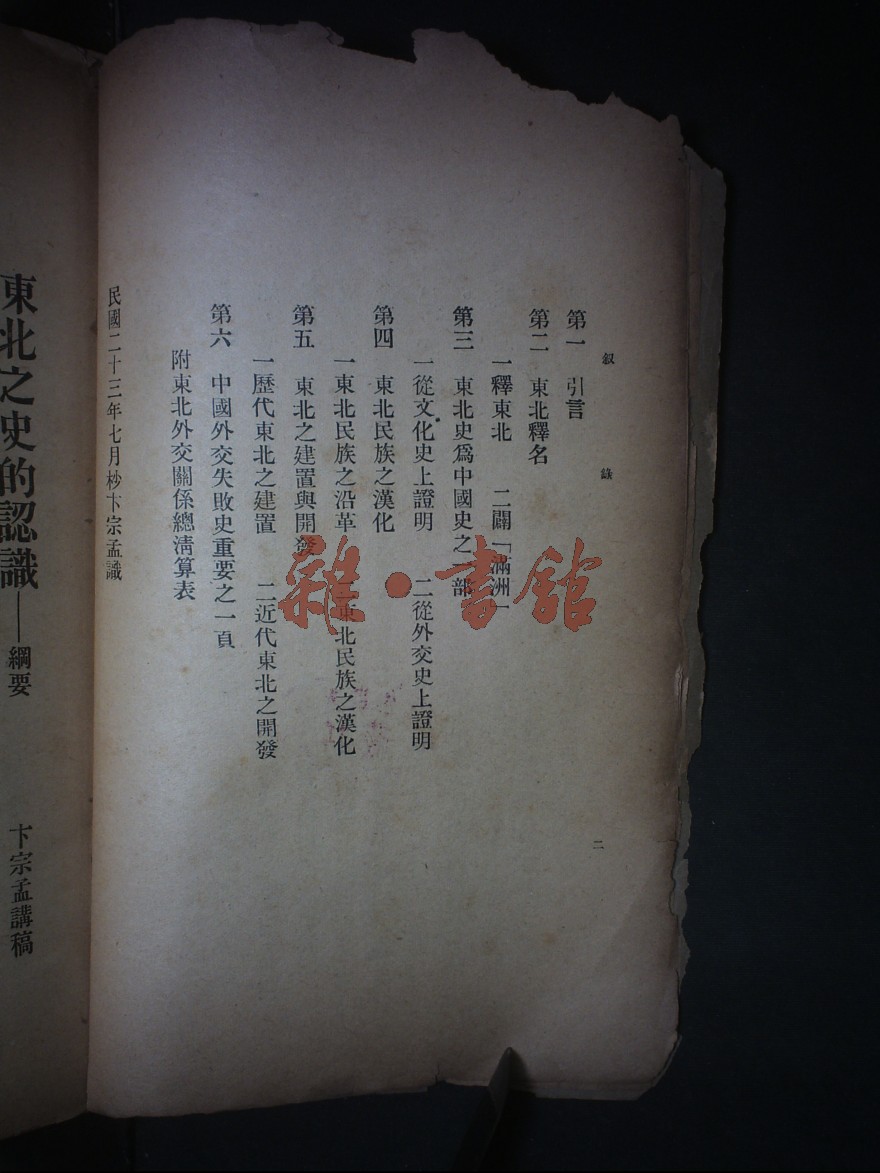 叙錄
二
第一　引言
第二　東北釋名
一釋東北　二闢「滿洲」
第三　東北史爲中國史之一部
一從文化史上證明　二從外交史上證明
第四　東北民族之漢化
一東北民族之沿革　二東北民族之漢化
第五　東北之建置與開發
一歷代東北之建置　二近代東北之開發
第六　中國外交失敗史重要之一頁
附東北外交關係總淸算表
民國二十三年七月杪卞宗孟識
東北之史的認識——綱要
卞宗孟講稿
雜·書館